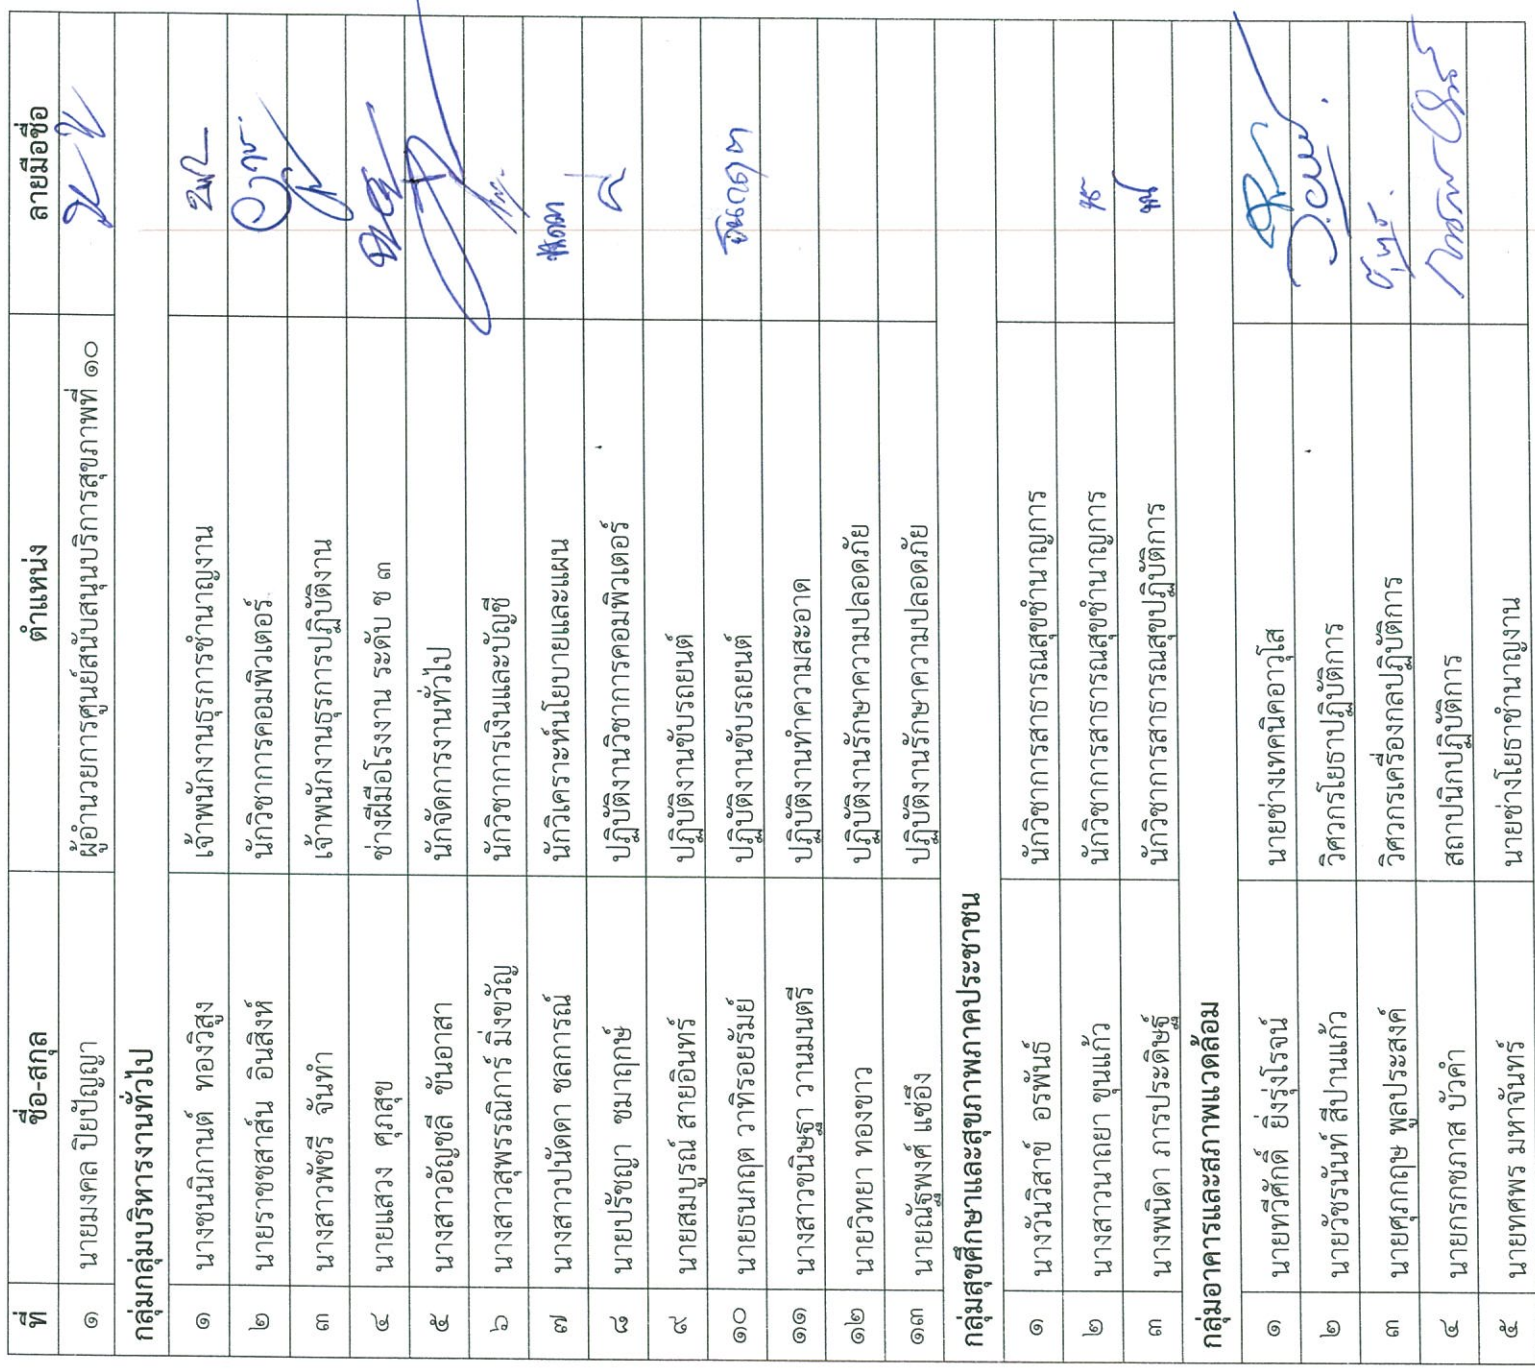 ที่ ชื่อ-สกุล ตำแหน่ง ลายมือชื่อ
๑ นายมงคล ปิยปัญญา ผู้อำนวยการศูนย์สนับสนุนบริการสุขภาพที่ ๑๐
กลุ่มกลุ่มบริหารงานทั่วไป
๑ นางชนนิกานต์ ทองวิสูง เจ้าพนักงานธุรการชำนาญงาน
๒ นายราชชสาส์น อินสิงห์ นักวิชาการคอมพิวเตอร์
๓ นางสาวพัชรี จันทำ เจ้าพนักงานธุรการปฏิบัติงาน
๔ นายแสวง ศุภสุข ช่างฝีมือโรงงาน ระดับ ช ๓
๕ นางสาวอัญชลี ขันอาสา นักจัดการงานทั่วไป
๖ นางสาวสุพรรณิการ์ มิ่งขวัญ นักวิชาการเงินและบัญชี
๗ นางสาวปนัดดา ชลการณ์ นักวิเคราะห์นโยบายและแผน
๘ นายปรัชญา ชมาฤกษ์ ปฏิบัติงานวิชาการคอมพิวเตอร์
๙ นายสมบูรณ์ สายอินทร์ ปฏิบัติงานขับรถยนต์
๑๐ นายธนกฤต วาทิรอยรัมย์ ปฏิบัติงานขับรถยนต์ ธนกฤต
๑๑ นางสาวขนิษฐา วานมนตรี ปฏิบัติงานทำความสะอาด
๑๒ นายวิทยา ทองขาว ปฏิบัติงานรักษาความปลอดภัย
๑๓ นายณัฐพงศ์ แซ่อึง ปฏิบัติงานรักษาความปลอดภัย
กลุ่มสุขศึกษาและสุขภาพภาคประชาชน
๑ นางวันวิสาข์ อรพันธ์ นักวิชาการสาธารณสุขชำนาญการ
๒ นางสาวนาถยา ขุนแก้ว นักวิชาการสาธารณสุขชำนาญการ
๓ นางพนิดา ภารประดิษฐ์ นักวิชาการสาธารณสุขปฏิบัติการ
กลุ่มอาคารและสภาพแวดล้อม
๑ นายทวีศักดิ์ ยิ่งรุ่งโรจน์ นายช่างเทคนิคอาวุโส
๒ นายวัชรนันท์ สีปานแก้ว วิศวกรโยธาปฏิบัติการ
๓ นายศุภกฤษ พูลประสงค์ วิศวกรเครื่องกลปฏิบัติการ
๔ นายกรกชภาส บัวคำ สถาปนิกปฏิบัติการ
๕ นายทศพร มหาจันทร์ นายช่างโยธาชำนาญงาน